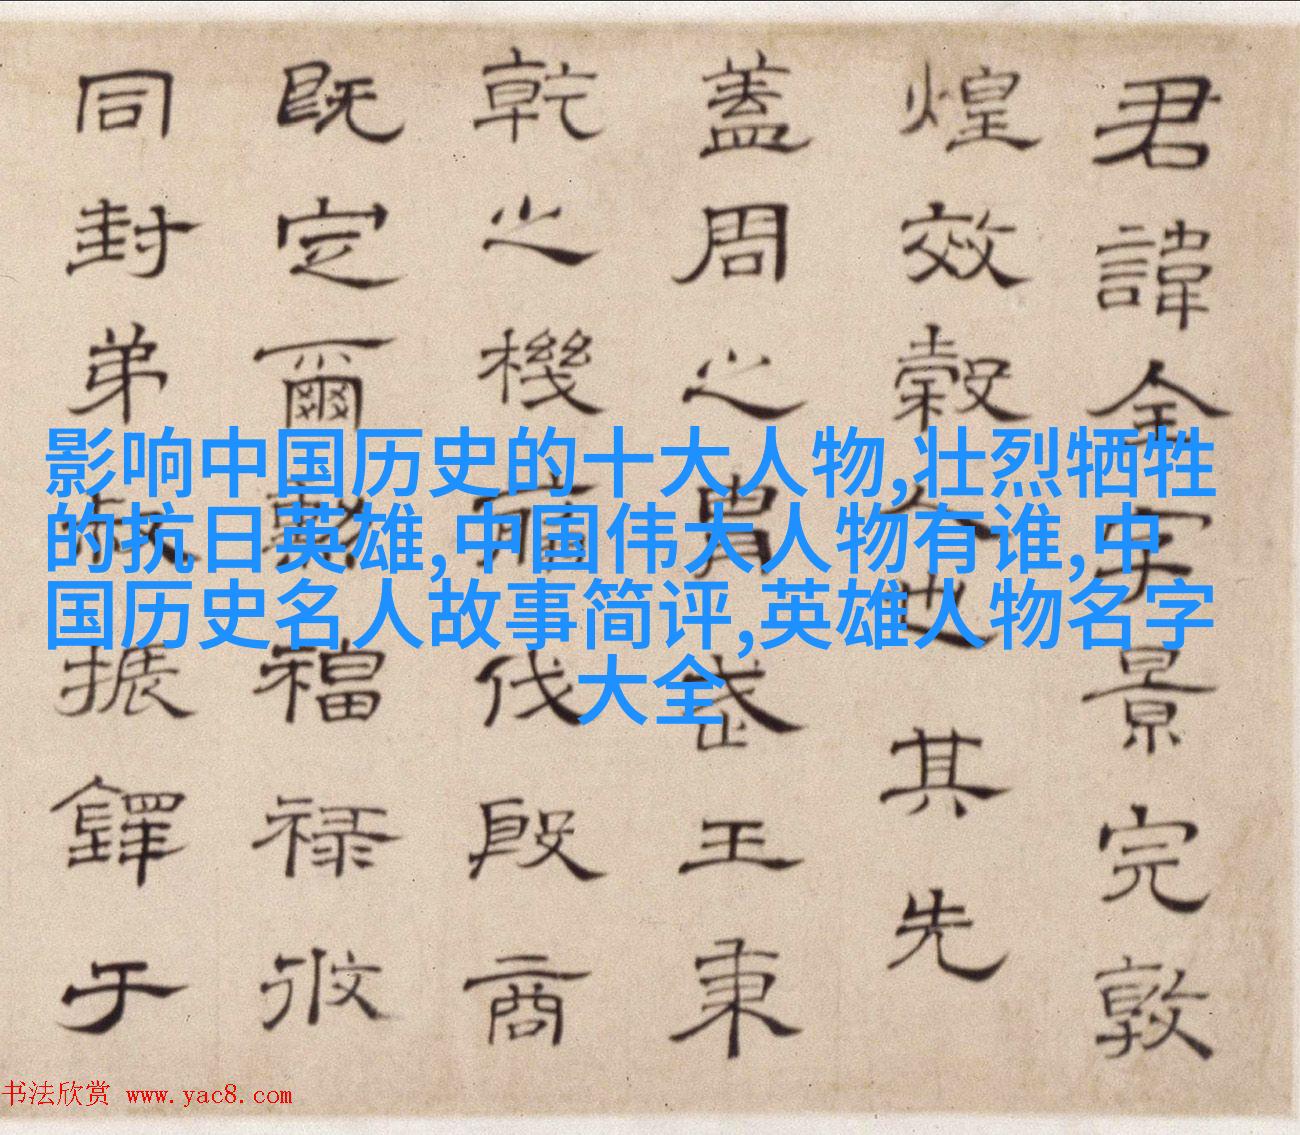 君諱全字景完敦
煌效穀人也其先
蓋周之胄武王秉
乾之機翦伐殷商
既定爾勳福祿攸
同封弟叔振鐸于
影响中国历史的十大人物,壮烈牺牲
的抗日英雄,中国伟大人物有谁,中
国历史名人故事简评,英雄人物名字
大全
书法欣赏 www.yac8.com